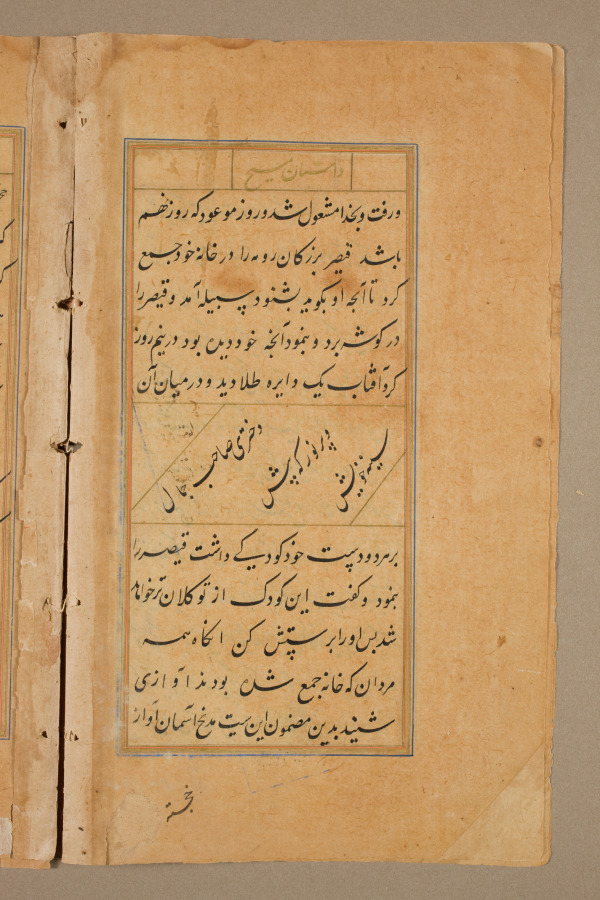 داستان مسیح
ورفت و بخدا مشغول شد و روز موعود که روز نهم
باشد قیصر بزرکان رومه را در خانه خود جمع
کرد تا آنچه او بکوید بشنود سبیله آمد و قیصر را
در کوشه برد و بنمود آنچه خود دیده بود در نیم روز
کرد آفتاب یک دایره طلا دید و در میان آن
دختری صاحب جمال
و پر نور که پیش
سینه خویش
بر هر دو دست خود کودکی داشت قیصر را
بنمود و کفت این کودک از تو کلان تر خواهد
شد پس او را پرستش کن آنکاه همه
مردان که خانه جمع شده بودند آوازی
شنیدند بدین مضمون این ست مدبح آسمان آواز